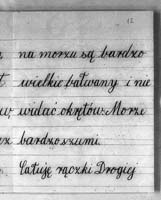 12
na morzu są bardzo
wielkie bałwany i nie
widać okrętów. Morze
bardzo szumi.
Całuję rączki Drogiej